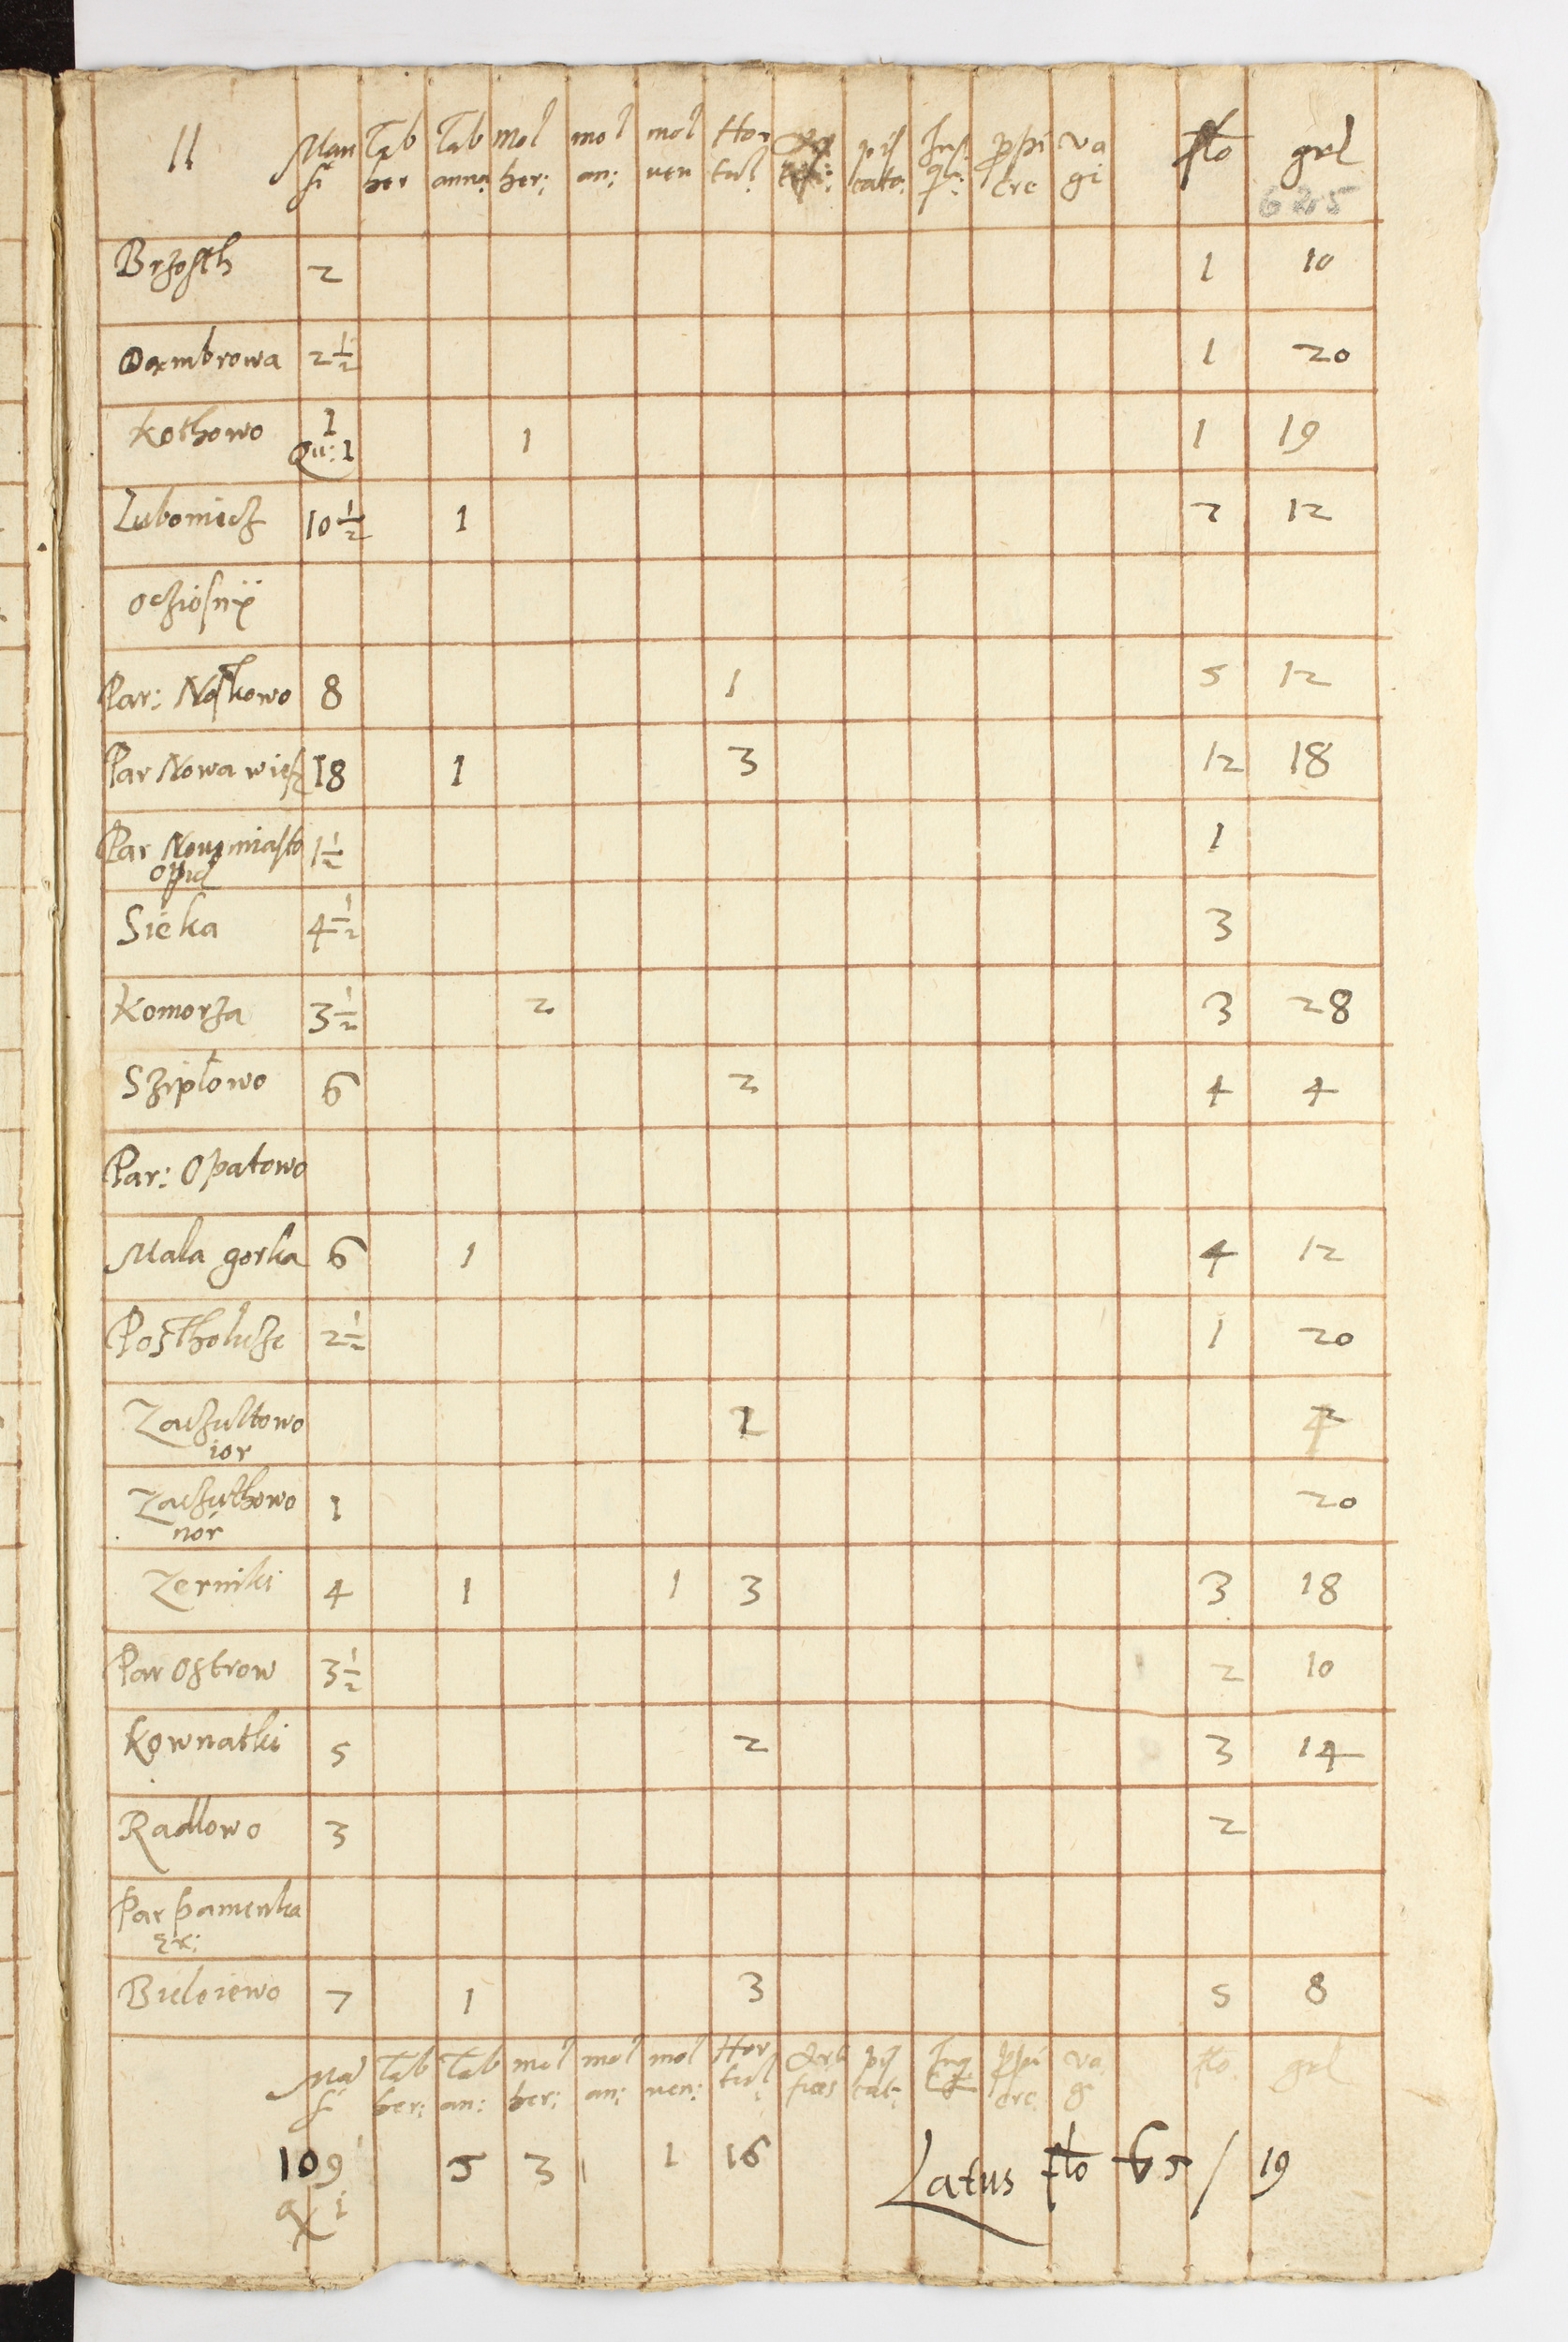 11 Mansi Tab her Tab anna: Mol her: mol an: mol ven Hortul pis cato: Inq: ppi cre va gi flo grl
625
Brzosth 2 1 10
Dambrowa 2 1/2 1 20
Kothowo 1 Qu: 1 1 1 19
Lubomicz 10 1/2 1 2 12
Ocziosnÿ
Par: Noskowo 8 1 5 12
Par Nowa wiesz 18 1 3 12 18
Par Novomiasto opid 1 1/2 1
Sieka 4 1/2 3
Komorza 3 1/2 2 3 28
Sziplowo 6 2 4 4
Par: Opatowo
Mala gorka 6 1 4 12
Postholicze 2 1/2 1 20
Zaczultowo ior 2
Zaczuthowo nor 1 20
Zerniki 4 1 1 3 3 18
Par Ostrow 3 1/2 2 10
Kownatki 5 2 3 14
Radlowo 3 2
Par pamenka Ex:
Bieleiewo 7 1 3 5 8
Mansi Tab her: Tab an: mol her: mol an: mol ven: Hortul Arti fices pis cat: Inq ppi cre va gi flo grl
109 5 3 1 16 Latus flo 65 / 19
q 1